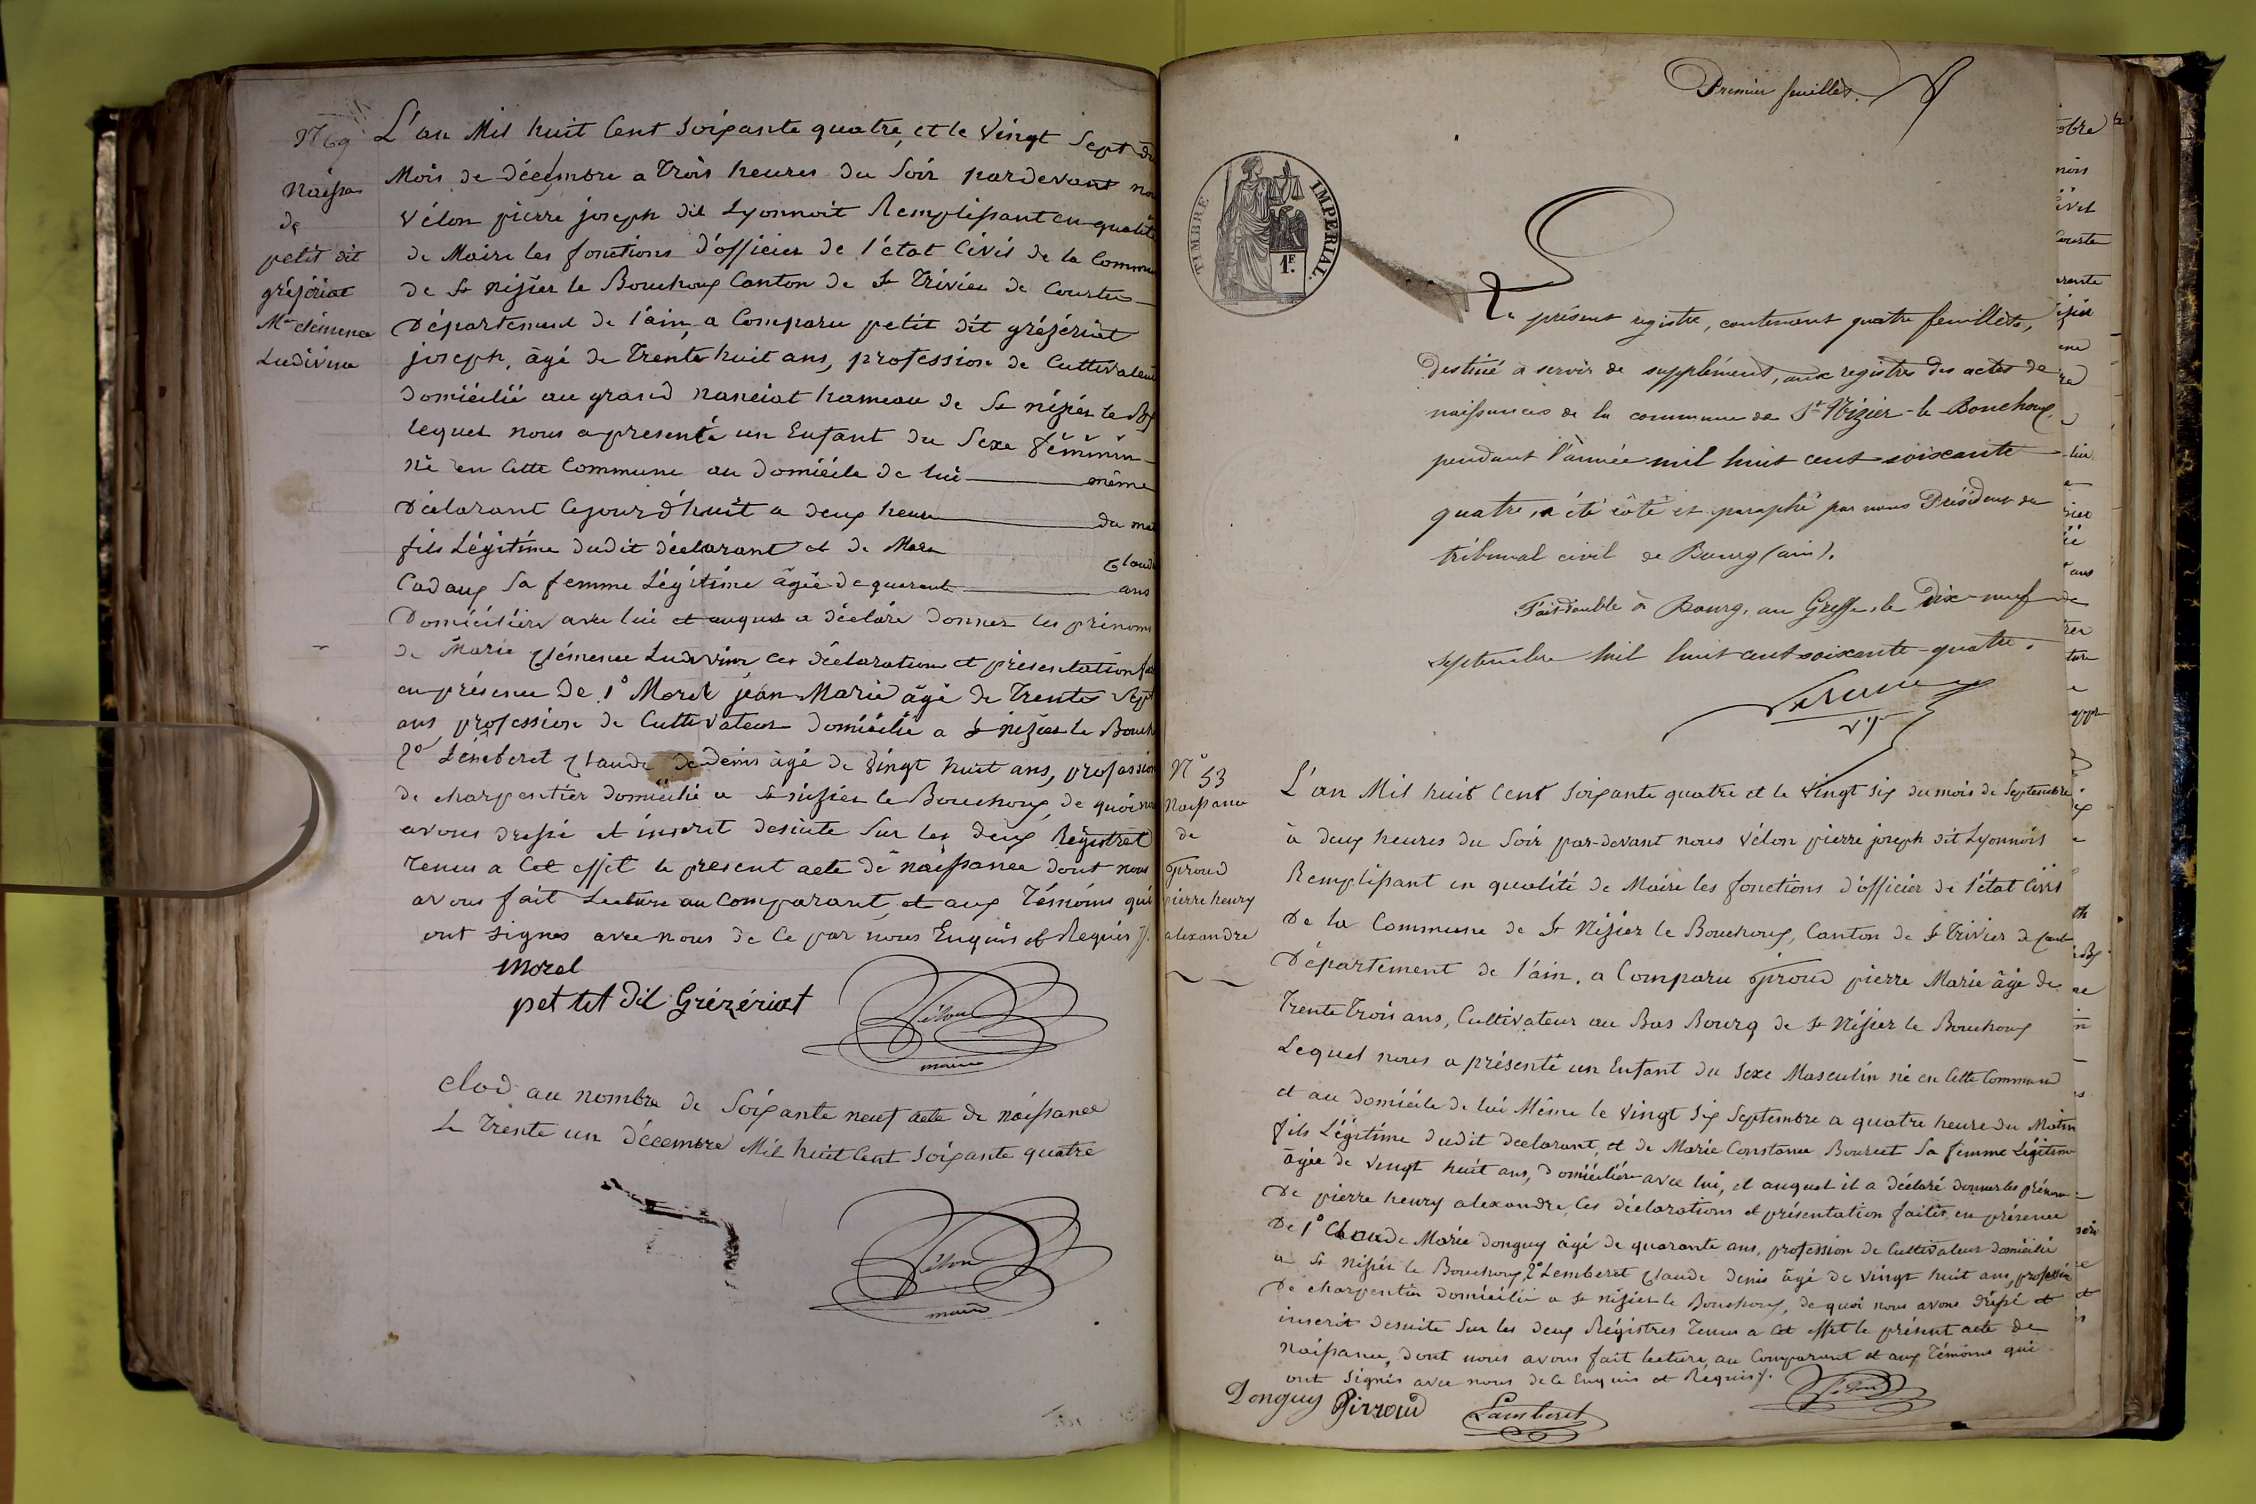 N 69
Naissa
de
petit dit
grézériat
Mie clémence
Ludivine
L'an Mil huit Cent Soixante quatre, et le Vingt Sept du
Mois de décembre a trois heures du Soir pardevant nou
Vélon pierre joseph dit Lyonnoit Remplissant en qualité
de Maire les fonctions d'officier de l'état Civil de la Commu
de St nizier le Bouchoux Canton de St Trivier de Courtes
Département de l'ain, a Comparu petit dit grézériat
joseph, âgé de Trente huit ans, profession de Cultivateur
Domicilié au grand nanciat hameau de St nizier le Bx
lequel nous a presenté un Enfant du Sexe féminin
né en Cette Commune au domicile de lui même
Déclarant Cejourd'huit a deux heure du mat
fils Légitime dudit déclarant et de Marie Claud
Cadoux Sa femme Légitime âgée de quarente ans
Domiciliée avec lui et auquel a déclaré donner les prénoms
de Marie Clémence Ludivine Ces déclaration et présentation fai
en présence de 1° Morel jean Marie âgé de Trente Sept
ans, profession de Cultivateur domicilié a St nizier le Bouch
2° Lemberet Claude denis âgé de Vingt huit ans, profession
de charpentier domicilié a St nizier le Bouchoux, de quoi nou
avons dressé et inscrit desuite Sur les deux Régistres
Tenus a Cet effet le present acte de naissance dont nous
avons fait Lecture au Comparant, et aux Témoins qui
ont Signés avec nous de Ce par nous Enquis et Requis
Morel
pet tit dit Grézériat
Vélon
maire
Clod au nombre de Soixante neuf acte de naissance
Le Trente un décembre Mil huit Cent Soixante quatre
Vélon
maire
Premier feuillet.
TIMBRE IMPERIAL.
1E.
Le présent registre, contenant quatre feuillets,
destiné à servir de supplément, aux registres des actes de
naissances de la commune de St Nizier-le-Bouchoux,
pendant l'année mil huit cent soixante
quatre, a été côté et paraphé par nous Président du
tribunal civil de Bourg (ain).
Fait double à Bourg, au Greffe, le Dix-neuf
septembre mil huit cent soixante-quatre.
N° 53
Naissance
de
Giroud
pierre henry
alexandre
L'an Mil huit Cent Soixante quatre et le Vingt Six du mois de Septembre
à deux heures du Soir par-devant nous Vélon pierre joseph dit Lyonnois
Remplissant en qualité de Maire les fonctions d'officier de l'état Civil
De la Commune de St Nizier le Bouchoux, Canton de St Trivier de Court
Département de l'ain. a Comparu Giroud pierre Marie âgé de
Trente Trois ans, Cultivateur au Bas Bourg de St Nizier le Bouchoux
Lequel nous a présenté un Enfant du Sexe Masculin né en Cette Commune
et au domicile de lui Même le Vingt Six Septembre a quatre heure du Matin
fils Légitime dudit declarant, et de Marie Constance Bourcet Sa femme Légitime
âgée de Vingt huit ans, domiciliée avec lui, et auquel il a déclaré donner les prénom
De pierre henry alexandre, Ces déclarations et présentation faites, en présence
De 1° Claude Marie Donguy âgé de quarante ans, profession de Cultivateur domicilié
a St nizier le Bouchoux, 2° Lemberet Claude denis âgé de Vingt huit ans, profession
De charpentier domicilié a St nizier le Bouchoux, de quoi nous avons dressé et
inscrit desuite Sur les deux Régistres Tenus a Cet effet le présent acte de
Naissance, dont nous avons fait lecture, au Comparant et aux Témoins qui
ont Signés avec nous de Ce Enquis et Réquis
Donguy Girroud Lamberet Vélon